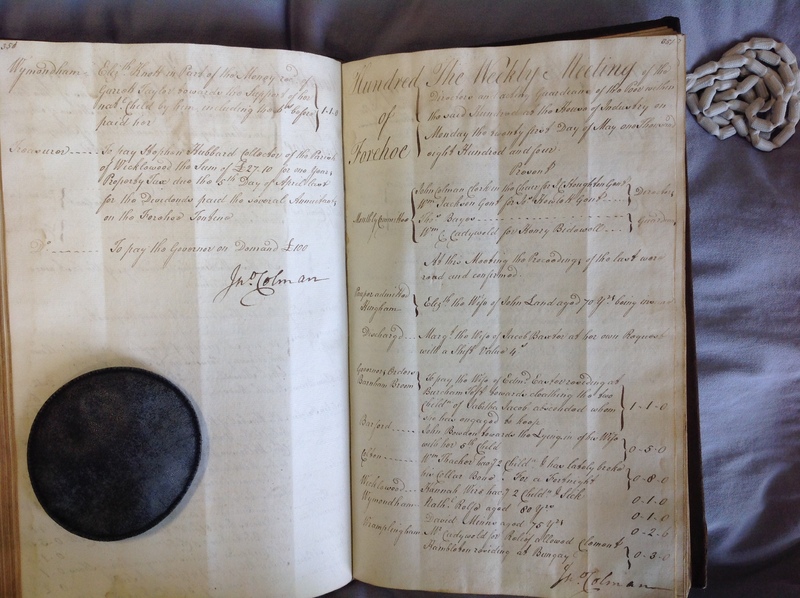 356
Wymondham Elizth. Knott in Part of the Money
Sarah Taylor towards the Support of her
Natl. Child by him including the before
paid her 1-1-0
Treasurer To pay Stephen Hubbard Collector of the Parish
of Wicklewood the Sum of £27.10 for one Years
Property Tax due the 5th Day of April last
for the Dividends paid the several Annuitants
on the Forehoe Tontine
Do. To pay the Governor on Demand £100
Jno. Colman
Hundred of Forehoe
The Weekly Meeting of the
Directors and acting Guardians of the Poor within
the said Hundred at the House of Industry on
Monday the twenty first Day of May one Thousand
eight Hundred and four
Present
John Colman Clerk in the Chair for
Wm. Jackson Gent for Jno. Howlett Gent Directors
Monthly Committee
Thos. Bayes
Wm. C. Cadywold for Henry Bidewell Guardians
At this Meeting the Proceedings of the last were
read and confirmed
Paupers admitted
Hingham Elizth. the Wife of John Land aged 70 Yrs. being
Discharged Margt. the Wife of Jacob Baxter at her own Request
with a Shift Value 4s
Governors Orders
Barnham Broom To pay the Wife of Edmd. Easter residing at
Bureham Toft towards cloathing the two
Childn. of Tabitha Jacob absconded whom
she has engaged to keep 1-1-0
Barford John Bowden towards the Lying in of his Wife
with her 5th Child 0-5-0
Colton Wm. Thacker has 2 Childn. & has lately broke
his Collar Bone For a Fortnight 0-8-0
Wicklewood Hannah has 2 Childn. Sick 0-1-0
Wymondham Kathe. Rolfe aged 80 Yrs 0-1-0
David Mann aged 75 Yrs 0-2-6
Cramplingham Mr. Cadywold for Relief allowed Clement
Hambleton residing at Bungay 0-3-0
Jno. Colman